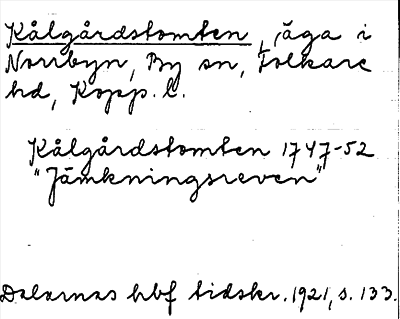 Kålgårdstomten, äga i
Norrbyn, By sn, Folkare
hd, Kopp. l.
Kålgårdstomten 1747-52
"Jämkningsreven"
Dalarnas hbf tidskr. 1921, s. 133.